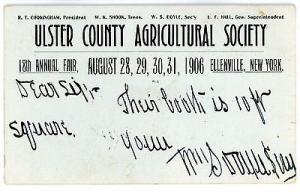 R. T. COOKINGHAM, President   W. K. SHOOK, Treas.   W. S. DOYLE, Sec'y   E. F. HALL, Gen. Superintendent
ULSTER COUNTY AGRICULTURAL SOCIETY
18th ANNUAL FAIR, AUGUST 28, 29, 30, 31, 1906 ELLENVILLE, NEW YORK.
Dear Sir,-
Their booth is 10 ft
square.
Yours
Wm S Doyle Secy